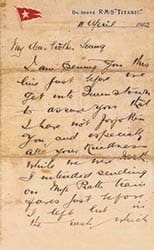 On board R.M.S. "TITANIC"
April 1912
My Dear
I am sending you this
line just before we
get into Queenstown
to assure you that
I have not forgotten
you and especially
all your Kindness
while we were
I intended sending
on
just before
I left but in
the rush which